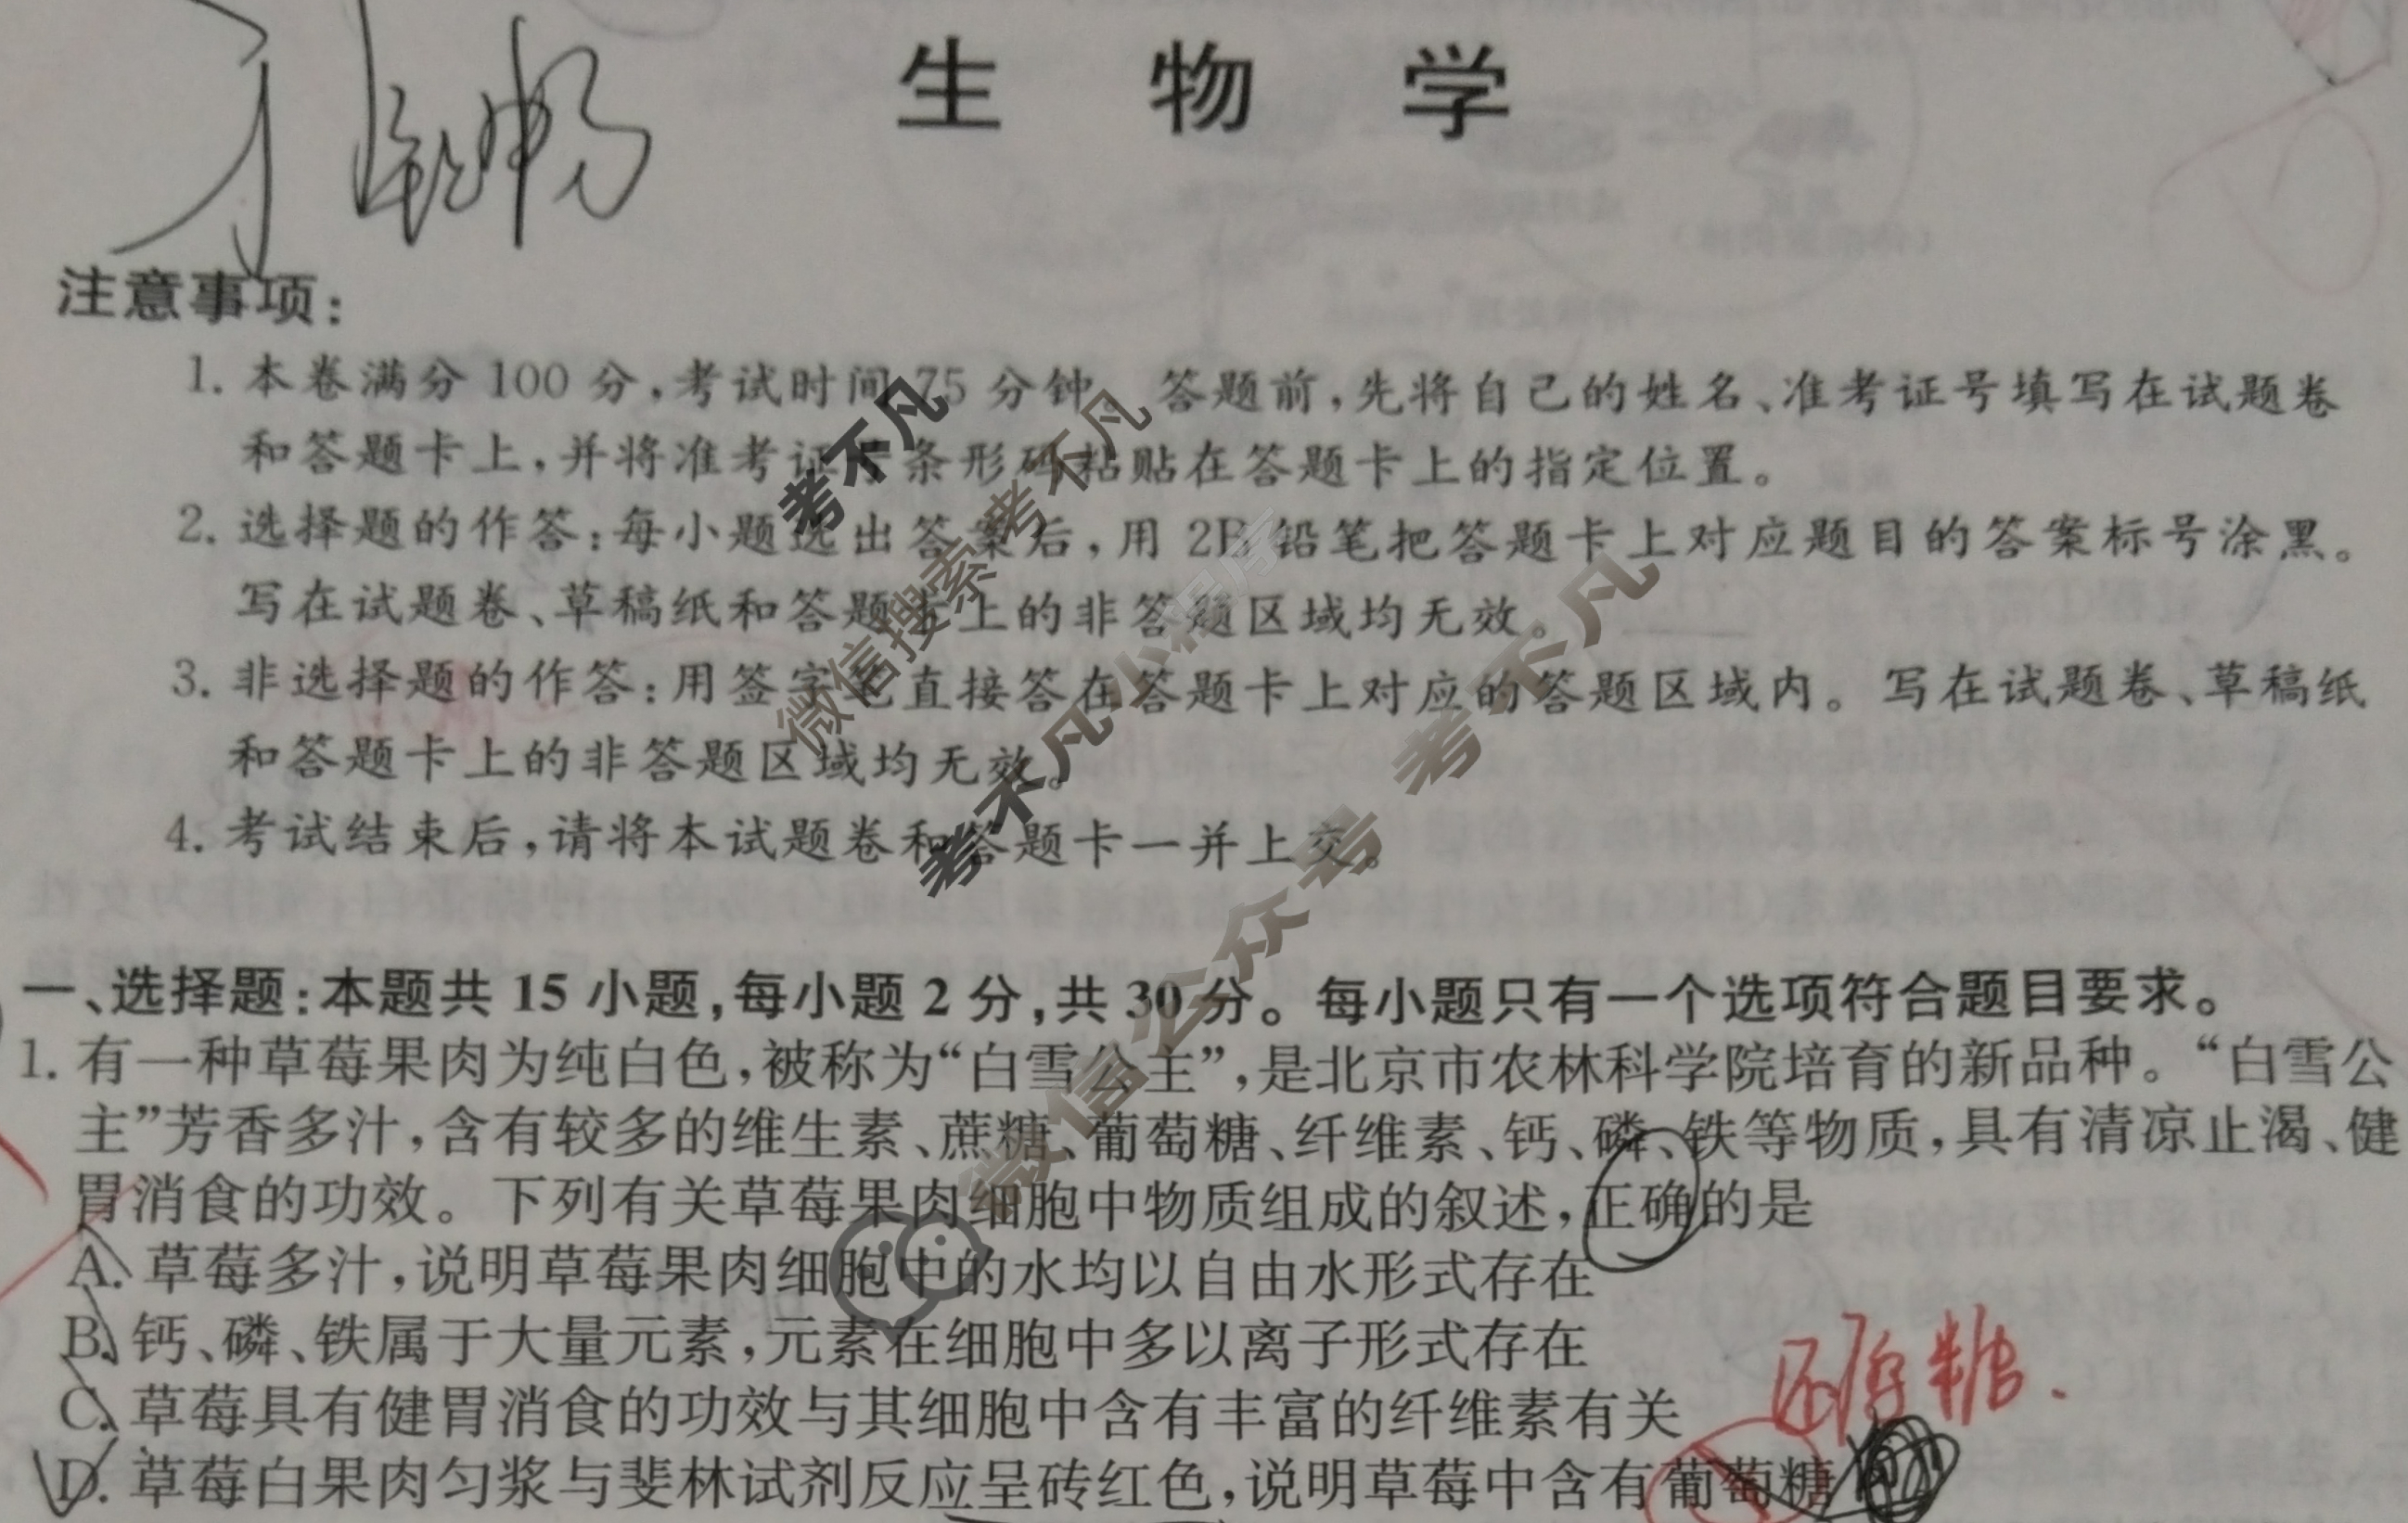 生 物 学
注意事项：
1. 本卷满分 100 分，考试时间 75 分钟。答题前，先将自己的姓名、准考证号填写在试题卷
和答题卡上，并将准考证号条形码粘贴在答题卡上的指定位置。
2. 选择题的作答：每小题选出答案后，用 2B 铅笔把答题卡上对应题目的答案标号涂黑。
写在试题卷、草稿纸和答题卡上的非答题区域均无效。
3. 非选择题的作答：用签字笔直接答在答题卡上对应的答题区域内。写在试题卷、草稿纸
和答题卡上的非答题区域均无效。
4. 考试结束后，请将本试题卷和答题卡一并上交。
考不凡
微信搜索考不凡
考不凡小程序
微信公众号 考不凡
一、选择题：本题共 15 小题，每小题 2 分，共 30 分。每小题只有一个选项符合题目要求。
1. 有一种草莓果肉为纯白色，被称为“白雪公主”，是北京市农林科学院培育的新品种。“白雪公
主”芳香多汁，含有较多的维生素、蔗糖、葡萄糖、纤维素、钙、磷、铁等物质，具有清凉止渴、健
胃消食的功效。下列有关草莓果肉细胞中物质组成的叙述，正确的是
A. 草莓多汁，说明草莓果肉细胞中的水均以自由水形式存在
B. 钙、磷、铁属于大量元素，元素在细胞中多以离子形式存在
C. 草莓具有健胃消食的功效与其细胞中含有丰富的纤维素有关
还原糖.
D. 草莓白果肉匀浆与斐林试剂反应呈砖红色，说明草莓中含有葡萄糖